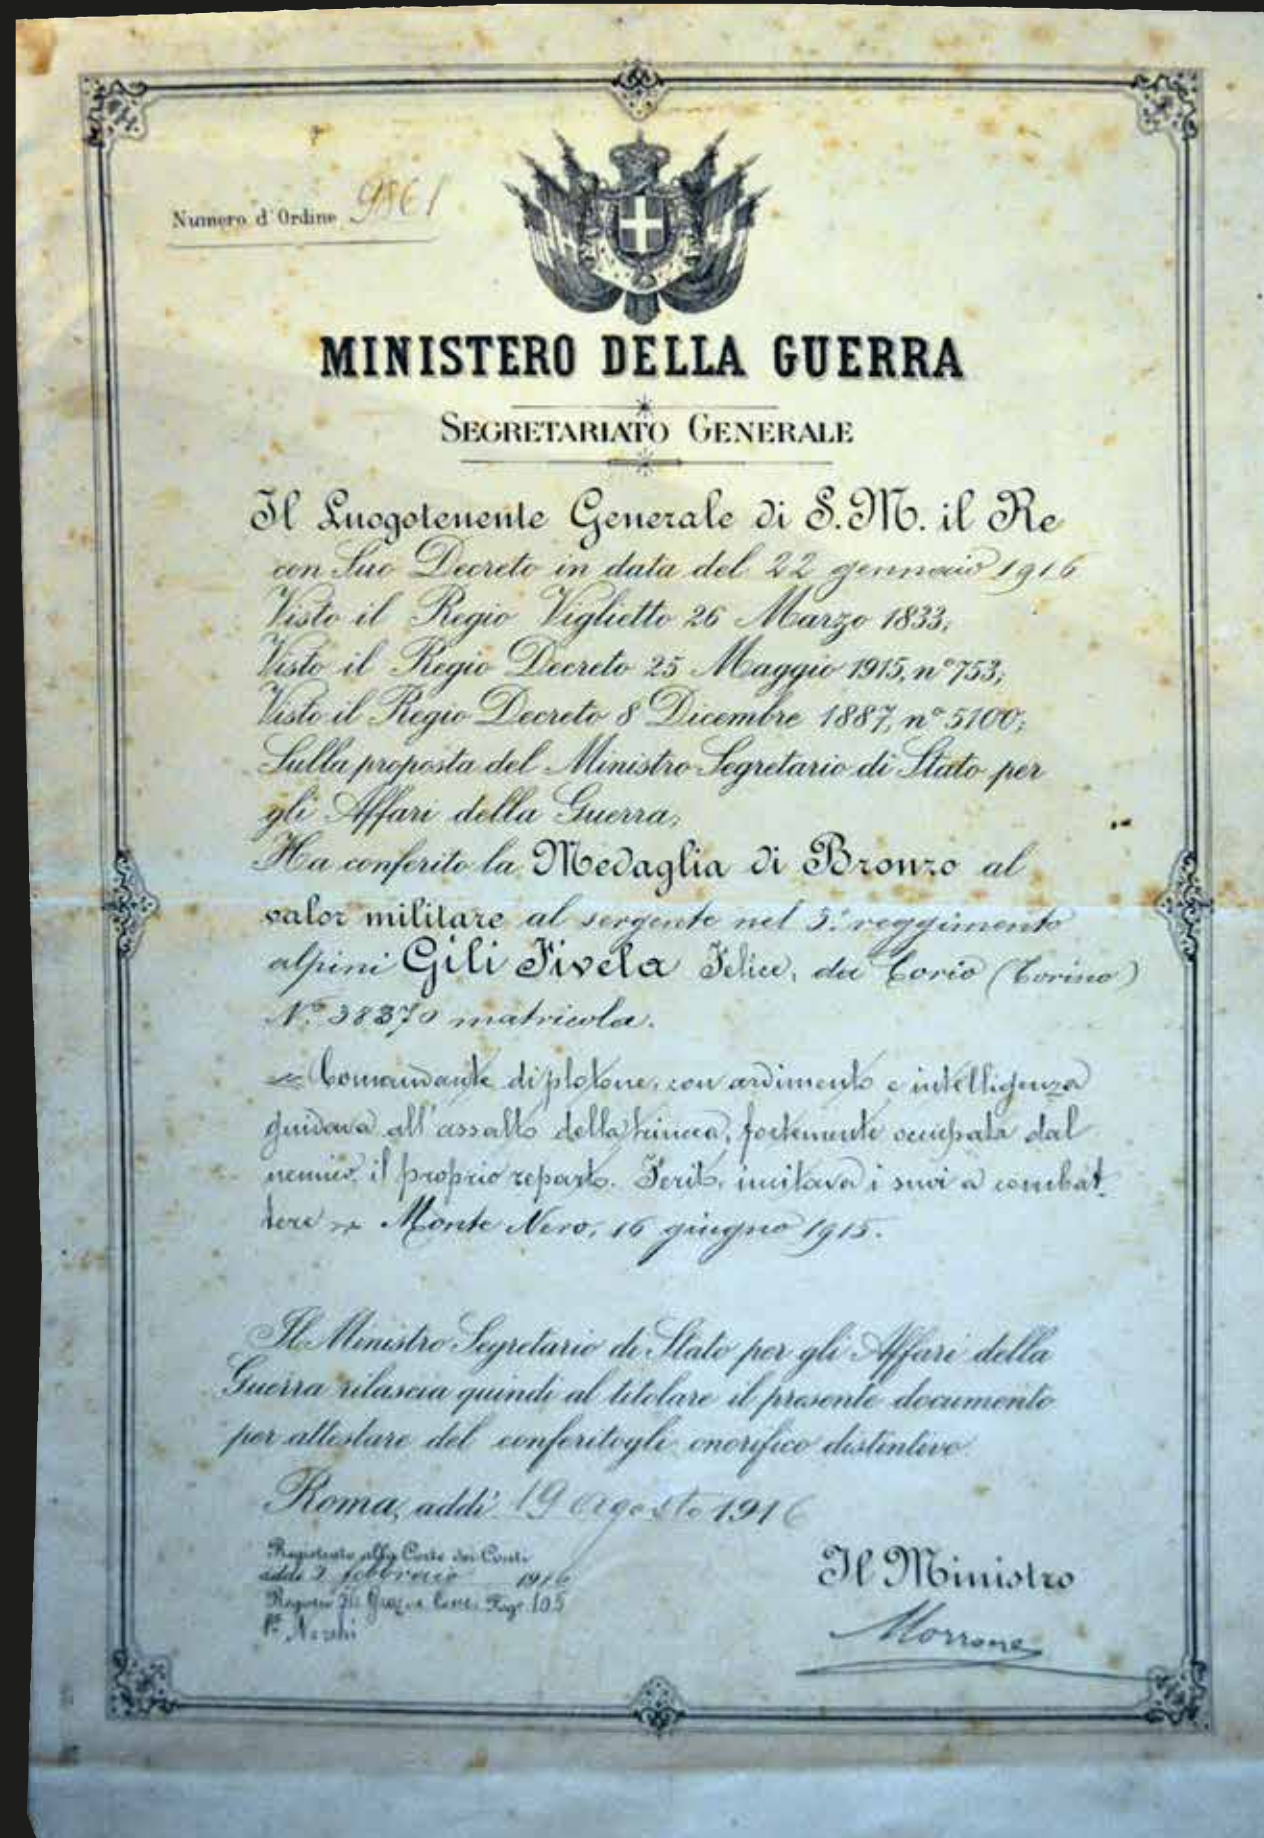 Numero d'Ordine 9861
MINISTERO DELLA GUERRA
SEGRETARIATO GENERALE
Il Luogotenente Generale di S. M. il Re
con Suo Decreto in data del 22 gennaio 1916
Visto il Regio Viglietto 26 Marzo 1833;
Visto il Regio Decreto 25 Maggio 1915, n° 753;
Visto il Regio Decreto 8 Dicembre 1887, n° 5100;
Sulla proposta del Ministro Segretario di Stato per
gli Affari della Guerra;
Ha conferito la Medaglia di Bronzo al
valor militare al sergente nel 3° reggimento
alpini Gili Fivela Felice, da Corio (Torino)
N° 38370 matricola.
Comandante di plotone, con ardimento e intelligenza
guidava all'assalto della trincea, fortemente occupata dal
nemico, il proprio reparto. Ferito, incitava i suoi a combat
tere Monte Nero, 16 giugno 1915.
Il Ministro Segretario di Stato per gli Affari della
Guerra rilascia quindi al titolare il presente documento
per attestare del conferitogli onorifico distintivo.
Roma, addì 19 Agosto 1916
Registrato alla Corte dei Conti
addì febbraio 1916
Registro Guerra Pag. 105
Il Ministro
Morrone